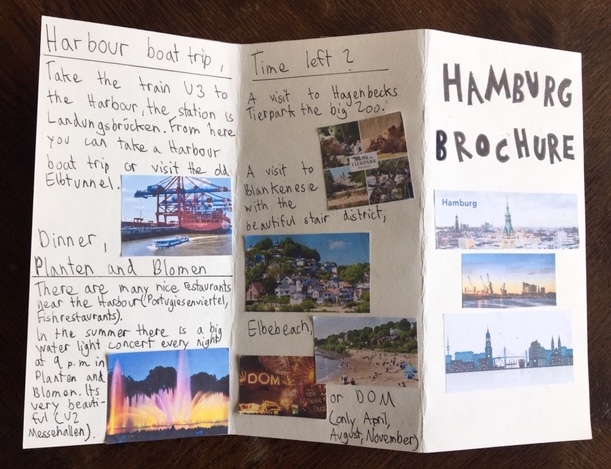 Harbour boat trip,
Take the train U3 to
the Harbour, the station is
Landungsbrücken. From here
you can take a Harbour
boat trip or visit the old
Elbtunnel.
Dinner,
Planten and Blomen
There are many nice restaurants
near the Harbour (Portugiesenviertel,
Fishrestaurants).
In the summer there is a big
water light concert every night
at 9 p.m. in
Planten and
Blomen. Its
very beauti-
ful (U2
Messehallen).
Time left?
A visit to Hagenbecks
Tierpark the big Zoo.
TIERPARK
A visit to
Blankenese
with the
beautiful stair district,
Elbebeach,
DOM
or DOM
(only April,
August, November)
HAMBURG
BROCHURE
Hamburg